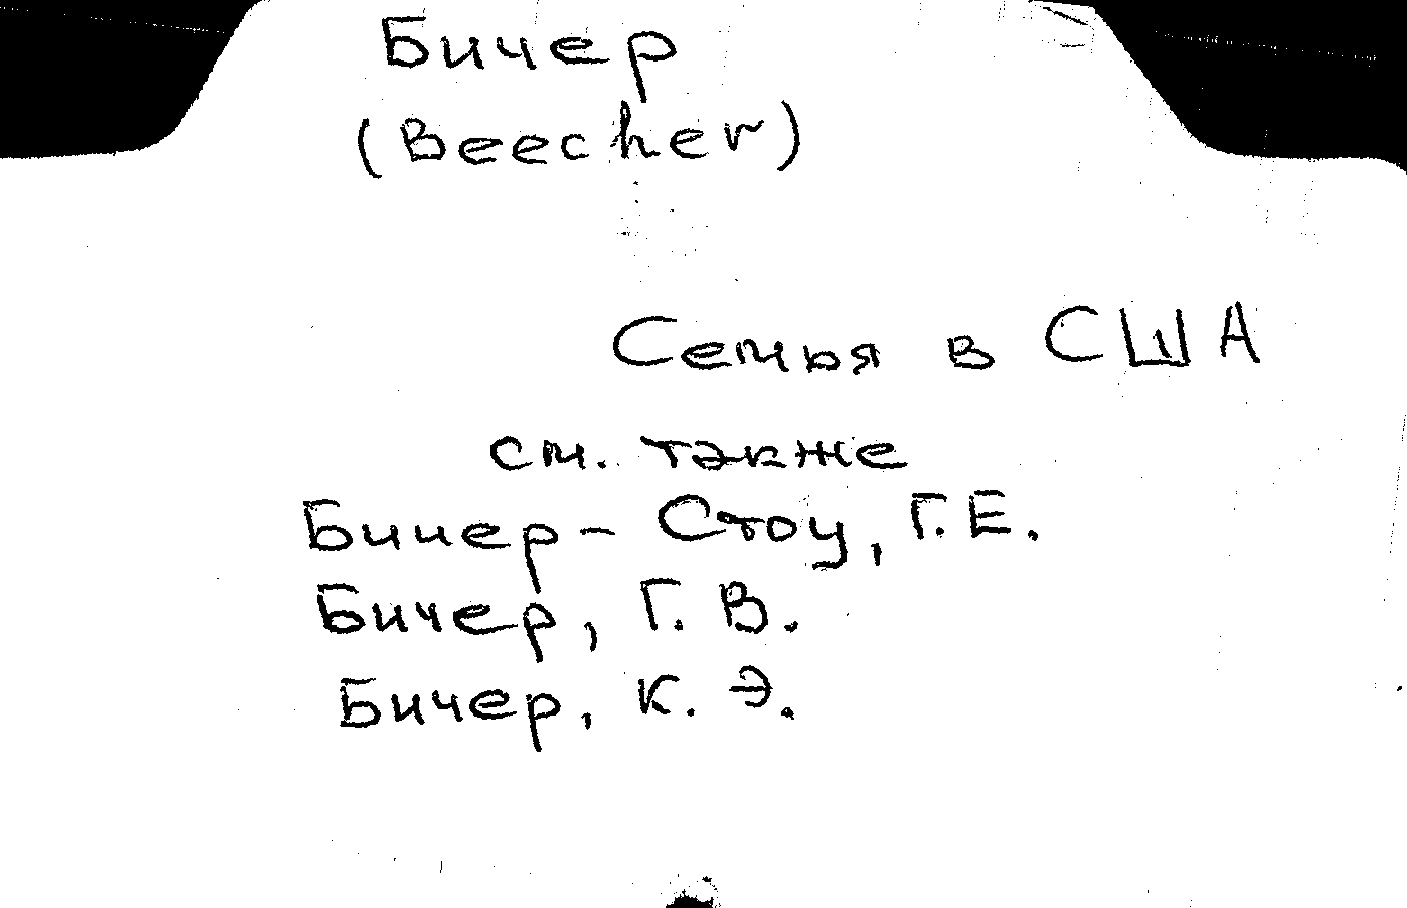 Бичер
(Beecher)
Семья в США
см. также
Бичер-Стоу, Г.Е.
Бичер, Г. В.
Бичер, К. Э.